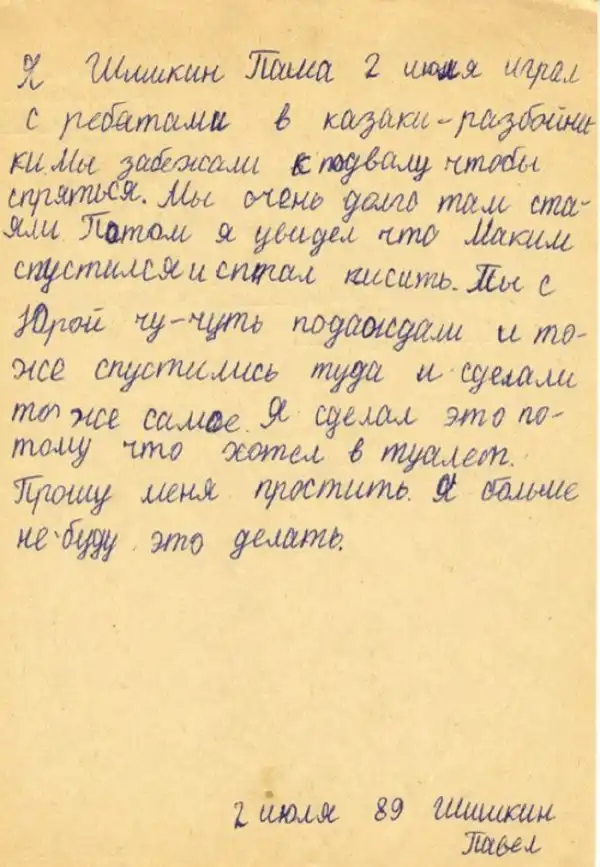 Я Шишкин Паша 2 июля играл
с ребятами в казаки-разбойни
ки. Мы забежали к подвалу чтобы
спряться. Мы очень долго там ста-
яли Потом я увидел что Маким
спустился и стал писить. Мы с
Юрой чу-чуть подаждали и то-
же спустились туда и сделали
то же самое. Я сделал это по-
тому что хотел в туалет.
Прошу меня простить. Я больше
не буду это делать.
2 июля 89 Шишкин
Павел